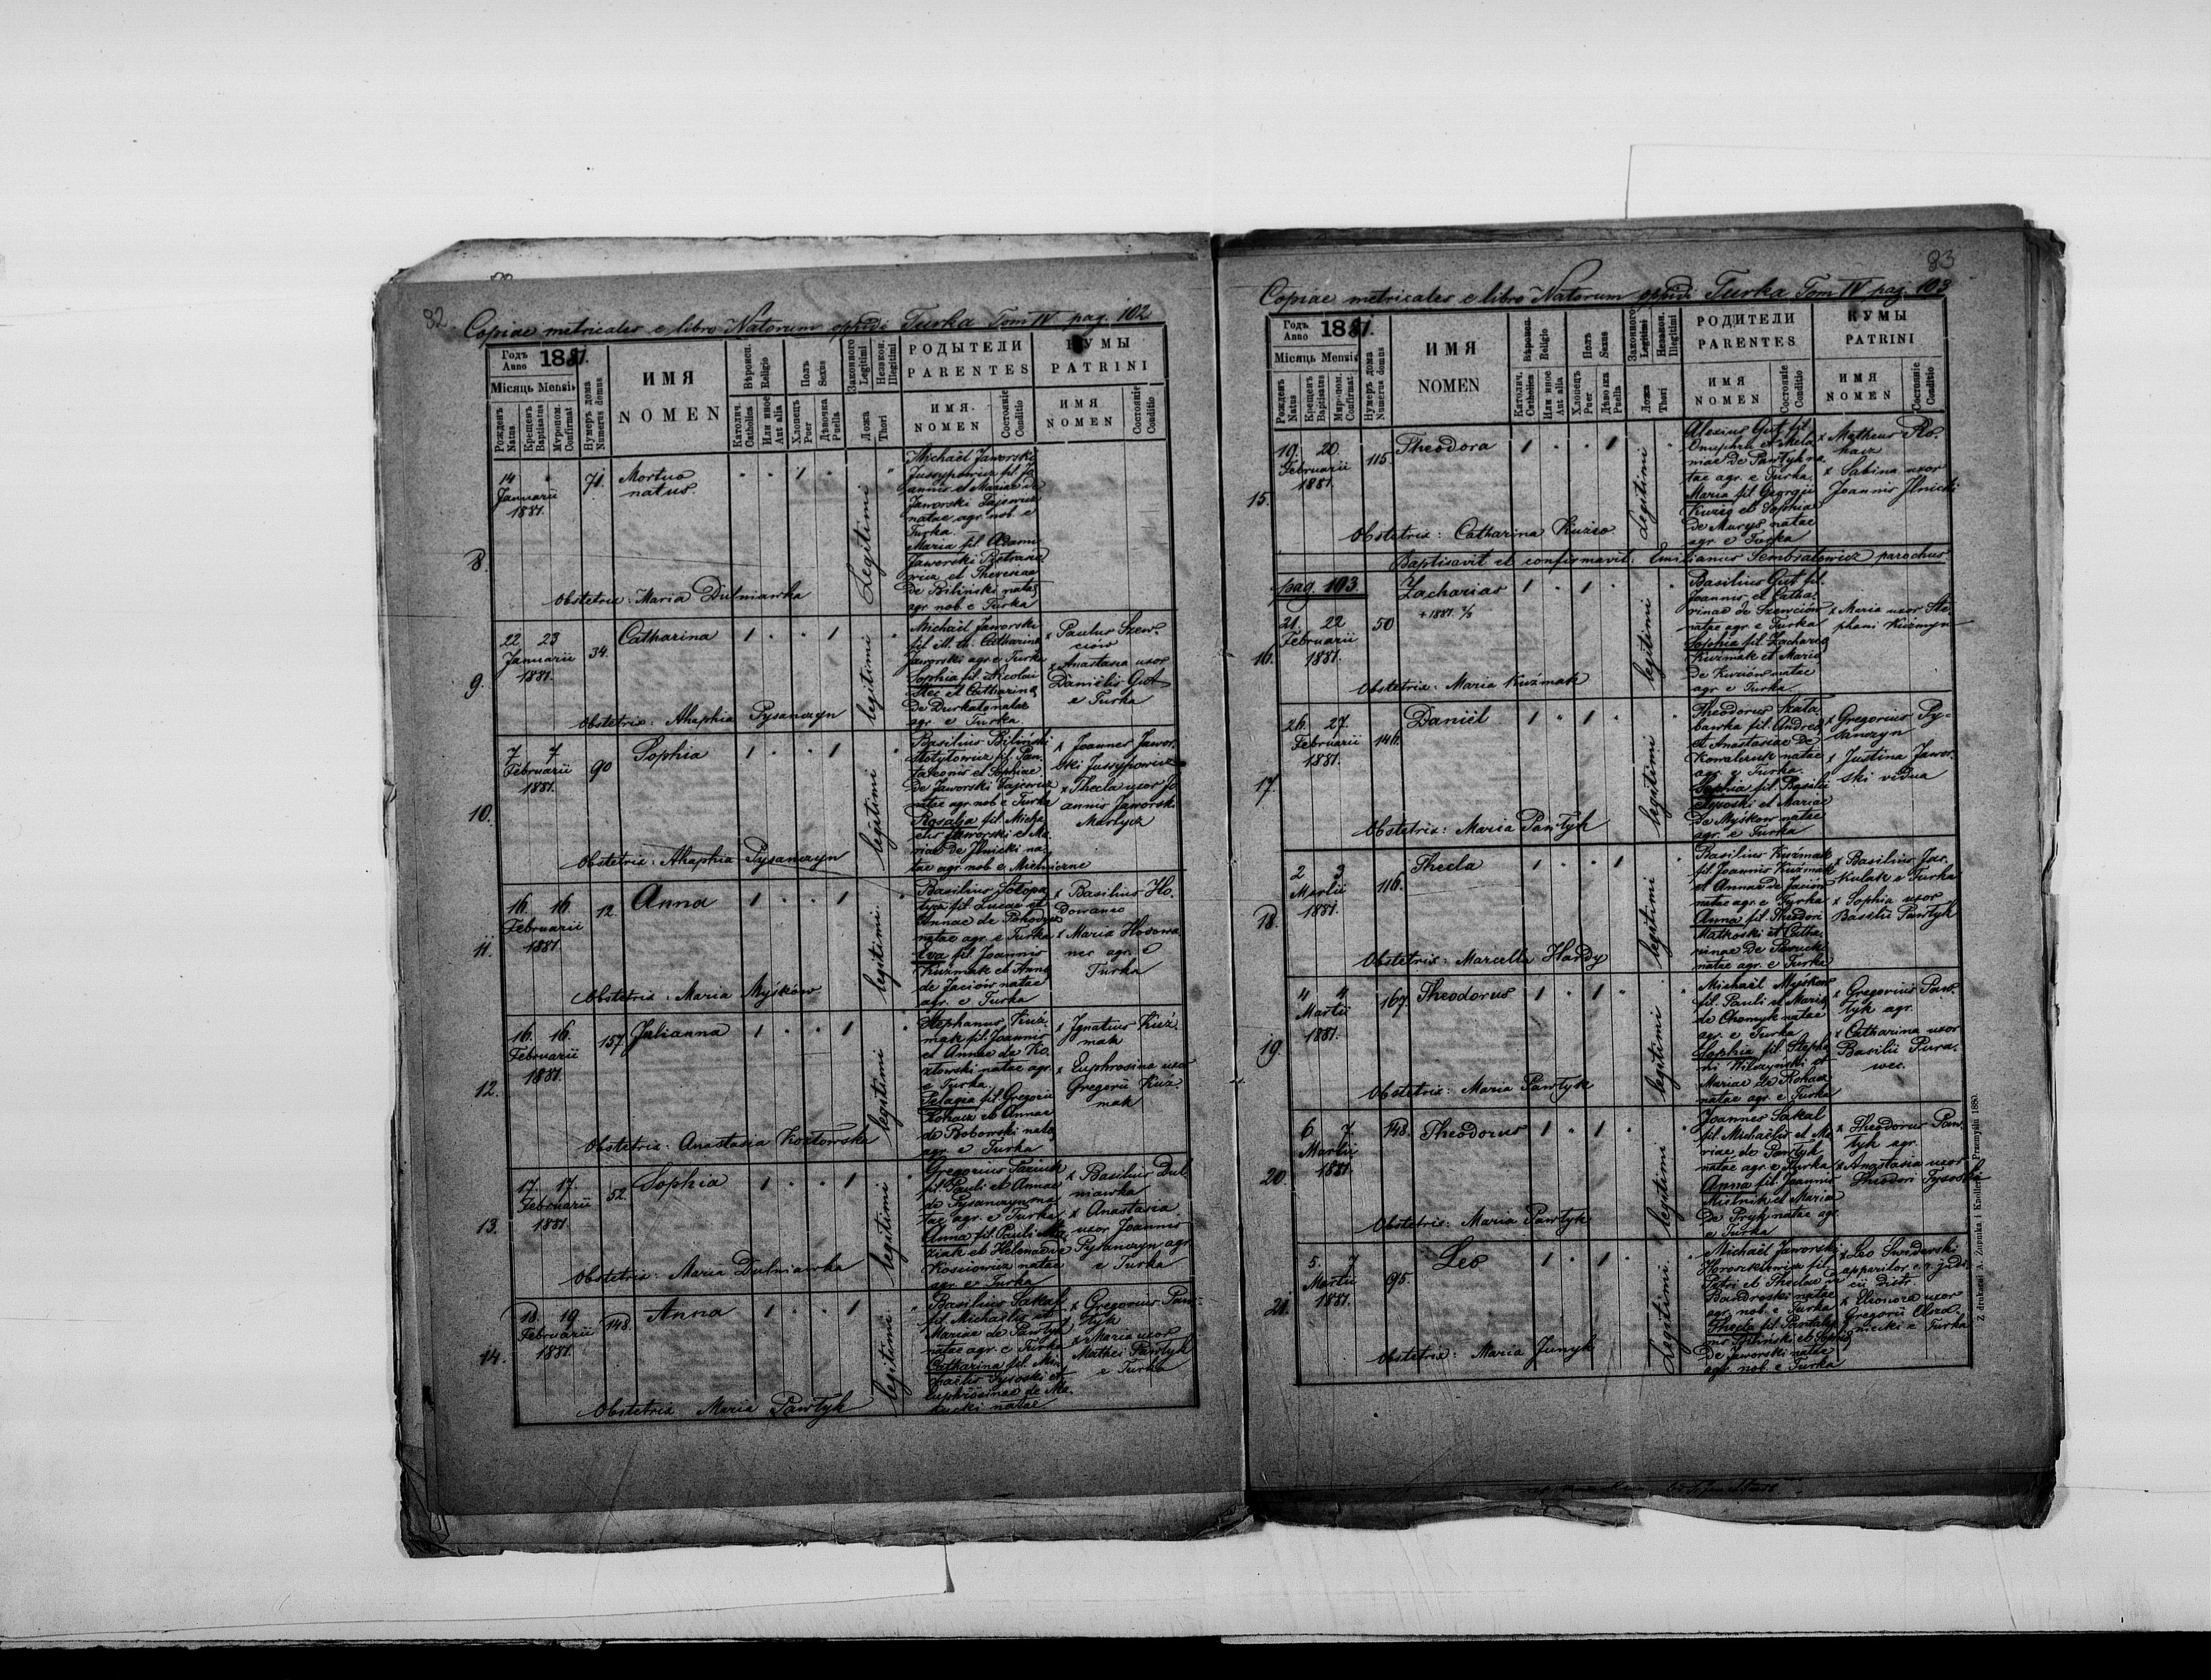 82.
Copiae metricales e libro Natorum oppidi Turka Tom IV pag. 102
Годъ Anno 1881.
Місяць Mensis
Рожденъ Natus
Крещенъ Baptisatus
Муропом. Confirmat
Нумеръ дома Numerus domus
ИМЯ
NOMEN
Вѣроисп. Religio
Католич. Catholica
Или иное Aut alia
Полъ Sexus
Хлопець Puer
Дѣвочка Puella
Законного Legitimi
Незакон. Illegitimi
Ложа Thori
РОДЫТЕЛИ
PARENTES
ИМЯ
NOMEN
Состояніе Conditio
КУМЫ
PATRINI
ИМЯ
NOMEN
Состояніе Conditio
8.
14
Januarii
1881.
71.
Mortuo
natus.
1
Legitimi
Michaël Jaworski
Jussypowicz fil. Jo
annis et Mariae de
Jaworski Fajewicz
natae agr. nob. e
Turka.
Maria fil. Adami
Jaworski
et Theresiae
de Biliński natae
agr. nob. e Turka
Obstetrix: Maria Dulniawka
9.
22 23
Januarii
1881.
34.
Catharina
1 1
legitimi
Michaël Jaworski
fil. Catharina
Jaworski agr. e Turka
Sophia fil. Nicolai
Stec et Catharinae
de natae
agr. e Turka.
x Paulus Szew-
ciow
x Anastasia uxor
Daniëlis Gut
e Turka
Obstetrix: Ahaphia Pysanczyn
10.
7 7
Februarii
1881.
90
Sophia
1 1
legitimi
Basilius Biliński
fil. Pan-
taleonis et Sophiae
de Jaworski Fajewicz
natae agr. nob. e Turka
Rosalia fil. Micha
elis Jaworski et Ma-
riae de Jlnicki na-
tae agr. nob. e
x Joannes Jawor-
ski Jussypowicz
x Thecla uxor Jo
annis Jaworski
Obstetrix: Ahaphia Pysanczyn
11.
16. 16.
Februarii
1881
12.
Anna
1 1
legitimi
Basilius
fil. Lucae et
Annae de
natae agr. e Turka
Eva fil. Joannis
Kuźmak et Annae
de Jaciow natae
agr. e Turka
x Basilius Ho-
x Maria
agr. e
Turka
Obstetrix: Maria Myśków
12.
16. 16.
Februarii
1881.
157
Julianna
1 1
legitimi
Stephanus Kuź-
mak fil. Joannis
et Annae de Ko-
złowski natae agr.
e Turka.
Pelagia fil. Gregorii
Rohacz et Annae
de Bobowski natae
agr. e Turka
x Jgnatius Kuź-
mak
x Euphrosina uxor
Gregorii Kuź-
mak
Obstetrix: Anastasia Kozłowska
13.
17. 17.
Februarii
1881
52.
Sophia
1 1
legitimi
Gregorius
fil. Pauli et Annae
de Pysanczyn na-
tae agr. e Turka
Anna fil. Pauli
et Helenae de
natae
agr. e Turka
x Basilius Dul-
niawka
x Anastasia
uxor Joannis
Pysanczyn agr.
e Turka
Obstetrix: Maria Dulniawka
14.
18. 19
Februarii
1881.
148.
Anna
1 1
legitimi
Basilius Sakal
fil. Michaëlis et
Mariae de Pawłyk
natae agr. e Turka
Catharina fil. Mi-
chaëlis Tysoski et
Euphrosinae de
natae
x Gregorius Paw-
łyk
x Maria uxor
Mathei Pawłyk
e Turka
Obstetrix Maria Pawłyk
83
Copiae metricales e libro Natorum oppidi Turka Tom IV pag. 103
Годъ Anno 1881.
Місяць Mensis
Рожденъ Natus
Крещенъ Baptisatus
Мѵропом. Confirmat.
Нумеръ дома Numerus domus
ИМЯ
NOMEN
Вѣроисп. Religio
Католич. Catholica
Или иное Aut alia
Полъ Sexus
Хлопецъ Puer
Дѣвочка Puella
Законного Legitimi
Незакон. Illegitimi
Ложа Thori
РОДИТЕЛИ
PARENTES
ИМЯ
NOMEN
Состояніе Conditio
КУМЫ
PATRINI
ИМЯ
NOMEN
Состояніе Conditio
15.
19. 20.
Februarii
1881.
115
Theodora
1 1
Legitimi
Alexius Gut fil.
Onuphrii et Mela-
niae de Pawłyk na-
tae agr. e Turka.
Maria fil. Georgii
Kuzio et Sophiae
de Murys natae
agr. e Turka
x Matheus Ro-
hacz
x Sabina uxor
Joannis Jlnicki
Obstetrix: Catharina Kuzio
Baptisavit et confirmavit: Emilianus Sembratowicz parochus
pag. 103.
16.
21. 22
Februarii
1881.
50
Zacharias
+ 1881.
1 1
legitimi
Basilius Gut fil.
Joannis et Catha-
rinae de Szewciów
natae agr. e Turka
Sophia fil. Zachariae
Kuzmak et Maria
de natae
agr. e Turka
x Maria uxor Ste-
phani Kuźmyn
Obstetrix: Maria Kuzmak
17.
26. 27.
Februarii
1881.
146.
Daniël
1 1
legitimi
Theodorus
fil. Andreae
et Anastasiae de
Kowalczuk natae
agr. e Turka.
Sophia fil. Basilii
Tysoski et Mariae
de Myśkow natae
agr. e Turka
x Gregorius Py-
sanczyn
x Justina Jawor-
ski vidua
Obstetrix: Maria Pawłyk
18.
2 3
Martii
1881.
116.
Thecla
1 1
legitimi
Basilius Kuźmak
fil. Joannis Kuźmak
et Annae de Jaciów
natae agr. e Turka
Anna fil. Theodori
Matkoski et Catha-
rinae de
natae agr. e Turka
x Basilius Jas-
kulak e Turka
x Sophia uxor
Basilii Pawłyk
Obstetrix: Marcella Hardy
19.
4 4
Martii
1881.
167.
Theodorus
1 1
legitimi
Michaël Myśkow
fil. Pauli et Mariae
de Chomyk natae
agr. e Turka
Sophia fil. Stepha-
ni Wilczyński et
Mariae de Rohacz
natae agr. e Turka
x Gregorius Paw-
łyk agr.
x Catharina uxor
Basilii Pura-
wec.
Obstetrix: Maria Pawłyk
20.
6 7
Martii
1881.
148.
Theodorus
1 1
legitimi
Joannes Sakal
fil. Michaëlis et Ma-
riae de Pawłyk
natae agr. e Turka
Anna fil. Joannis
Mielnik et Maria
de Pryk natae agr.
e Turka
x Theodorus Paw-
łyk agr.
x Anastasia uxor
Theodori Tysoski
Obstetrix: Maria Pawłyk
21.
5. 7
Martii
1881.
95.
Leo
1 1
Legitimi
Michaël Jaworski
fil.
Petri et Theclae de
natae
agr. nob. e Turka
Thecla fil. Pantaleo-
nis Biliński et Sophiae
de Jaworski natae
agr. nob. e Turka
x Leo Swiderski
apparitor c. r. judi-
cii distr.
x Eleonora uxor
Gregorii
e Turka
Obstetrix: Maria Junyk
Z drukarni A. Żupnika i Knollera, Przemyśl 1880.